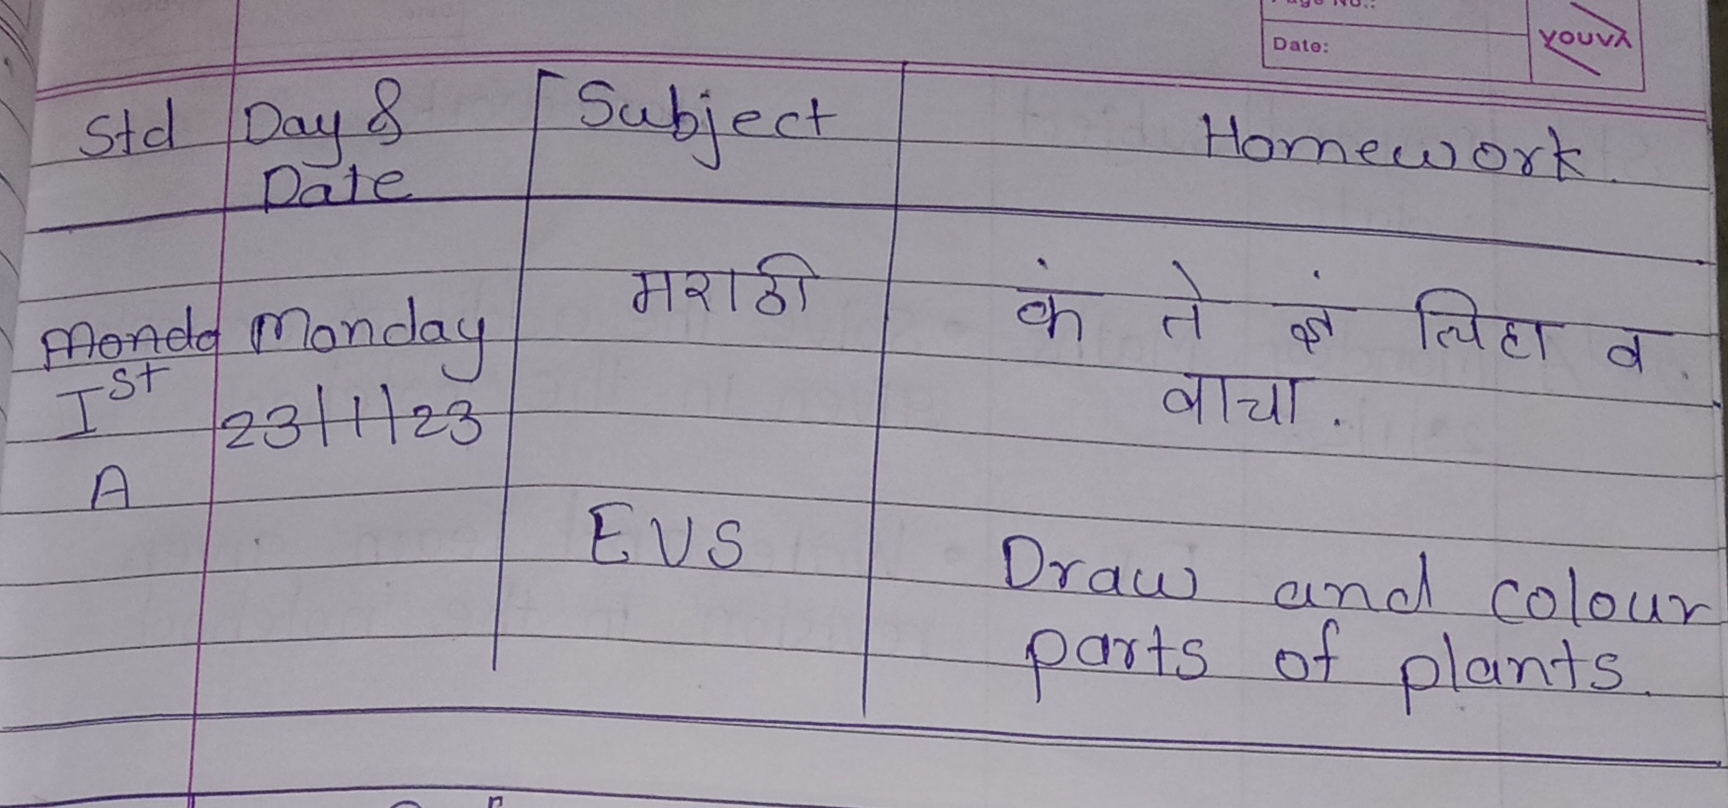 Page No.:
Date:
YOUVA
Std Day & Subject Homework.
Date
मराठी कं ते ज्ञं लिहा व
Monda Monday वाचा.
Ist 23/1/23
A
EVS Draw and colour
parts of plants.